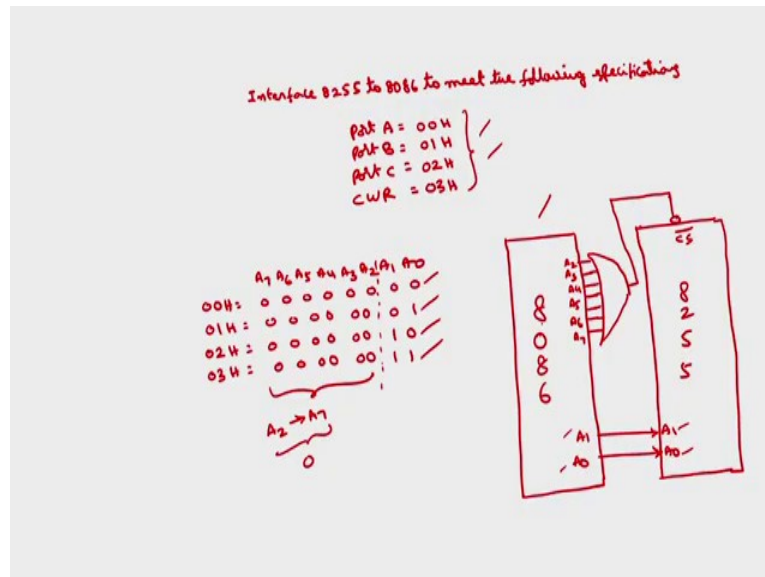 Interface 8255 to 8086 to meet the following specifications
Port A = 00H
Port B = 01H
Port C = 02H
CWR = 03H
A7 A6 A5 A4 A3 A2 A1 A0
00H: 0 0 0 0 0 0 0 0
01H: 0 0 0 0 0 0 0 1
02H: 0 0 0 0 0 0 1 0
03H: 0 0 0 0 0 0 1 1
A2 → A7
0
8086
A2
A3
A4
A5
A6
A7
A1
A0
CS
8255
A1
A0